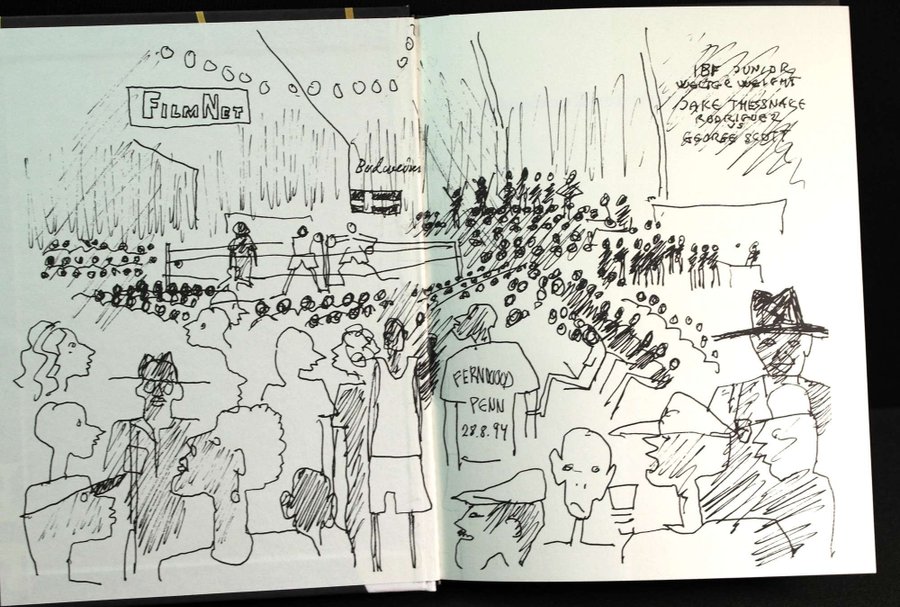 FILMNET
Budweiser
IBF JUNIOR
WELTER WEIGHT
JAKE THESSNAKE
RODRIGUEZ
VS
GEORGE SCOTT
FERNWOOD
PENN
28.8.94